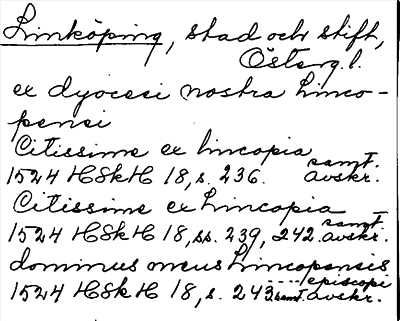 Linköping, stad och stift,
Österg.l.
ex dyocesi nostra Linco-
pensi
Citissime ex lincopia
1524 HSkH 18, s. 236. samt. avskr.
Citissime ex Lincopia
1524 HSkH 18, ss. 239, 242. samt. avskr.
dominus meus Lincopensis
---- episcopi
1524 HSkH 18, s. 243. samt. avskr.